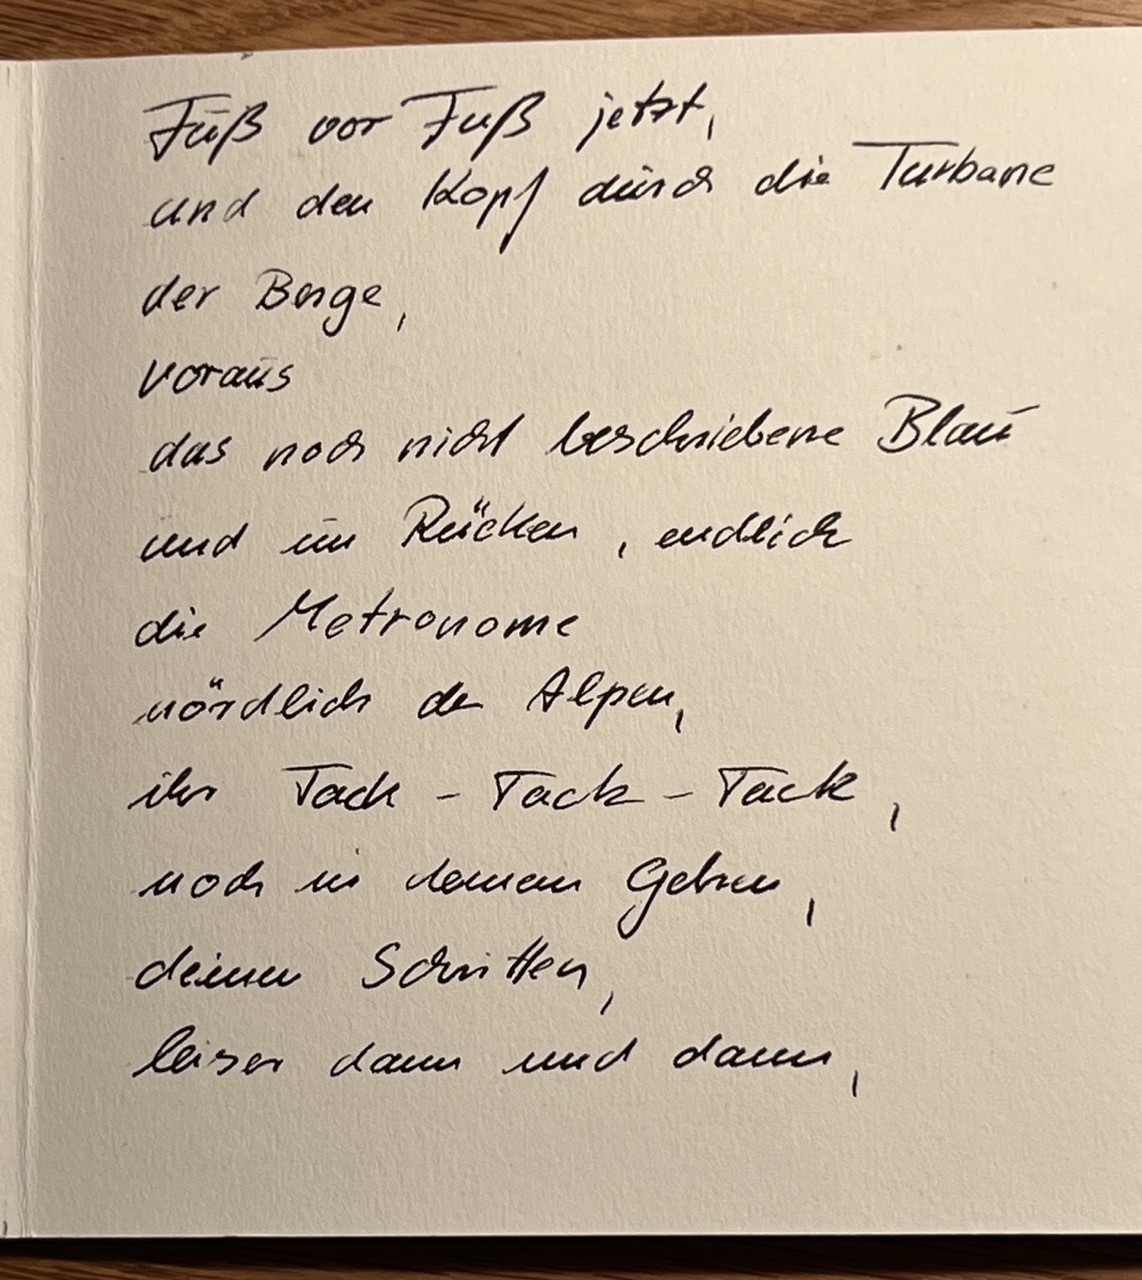 Fuß vor Fuß jetzt,
und den Kopf durch die Turbane
der Berge,
voraus
das noch nicht beschriebene Blau
und im Rücken, endlich
die Metronome
nördlich der Alpen,
ihr Tack - Tack - Tack,
noch in deinem Gehen,
deinen Schritten,
leiser dann und dann,